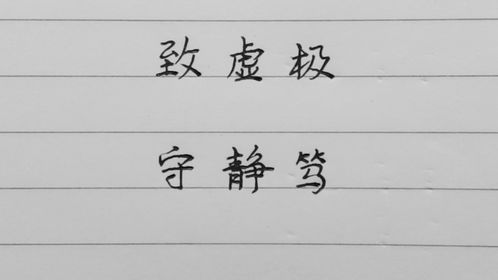 致虚极
守静笃